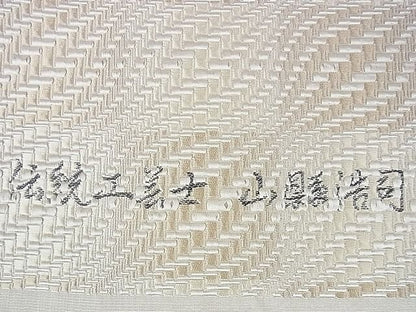 伝統工芸士 山縣浩司